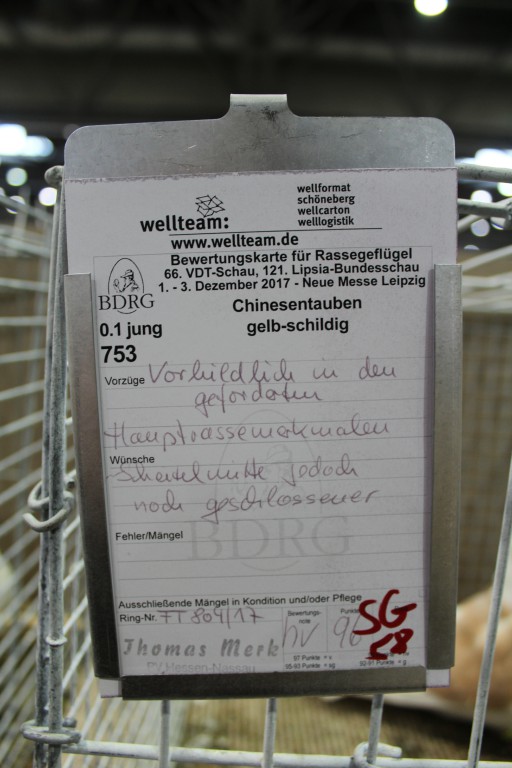 wellteam:
wellformat
schöneberg
wellcarton
welllogistik
www.wellteam.de
Bewertungskarte für Rassegeflügel
66. VDT-Schau, 121. Lipsia-Bundesschau
1. - 3. Dezember 2017 - Neue Messe Leipzig
BDRG
Chinesentauben
0.1 jung gelb-schildig
753
Vorzüge Vorbildlich in den
geforderten
Hauptrassemerkmalen
Wünsche
Scheitelmitte jedoch
noch geschlossener
Fehler/Mängel
BDRG
Ausschließende Mängel in Kondition und/oder Pflege
Ring-Nr. FT 809/17
Bewertungs-
note
hv
Punkte
96
SG
Thomas Merk
PV Hessen-Nassau
97 Punkte = v